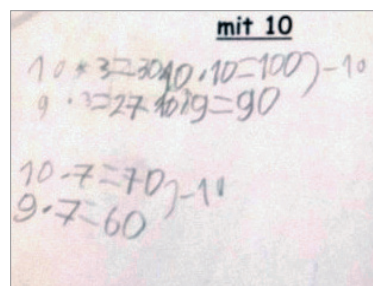 mit 10
10 · 3 = 30 10 · 10 = 100 ) - 10
9 · 3 = 27 10 · 9 = 90
10 · 7 = 70 ) - 10
9 · 7 = 60